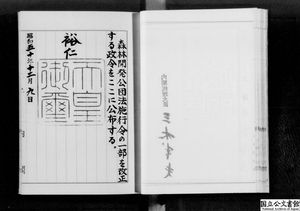 森林開発公団法施行令の一部を改正
する政令をここに公布する。
裕仁
天皇
御璽
昭和五十二年十二月九日
内閣総理大臣
国立公文書館
National Archives of Japan